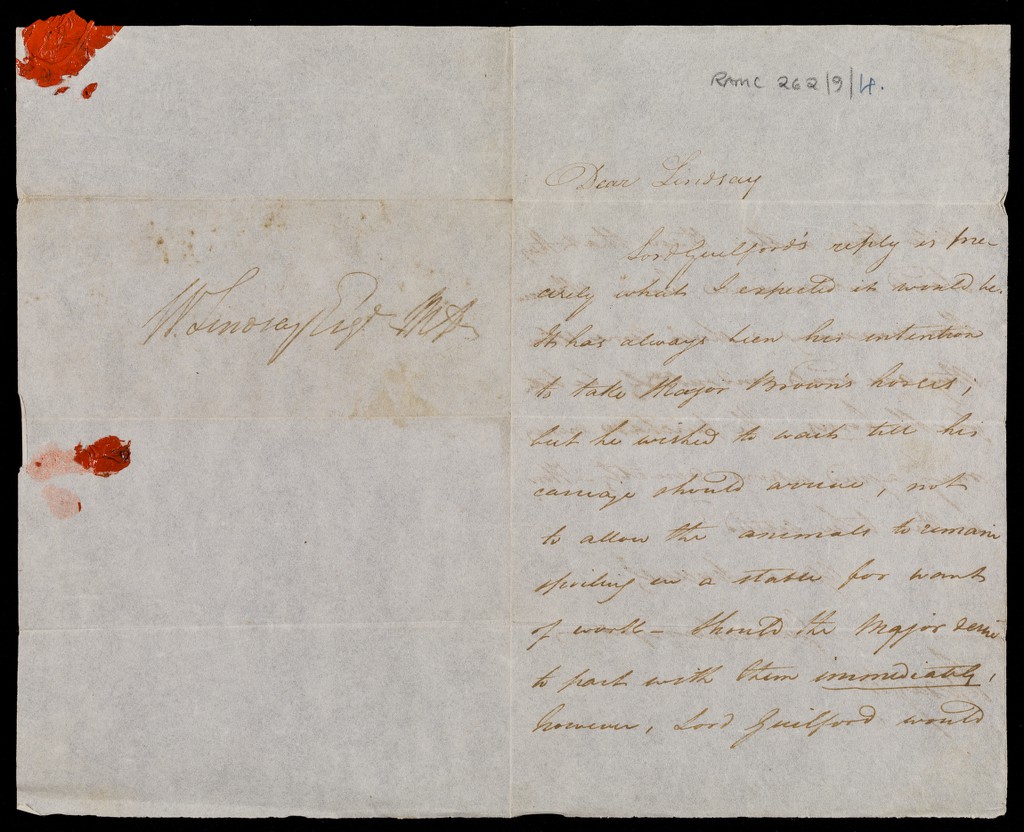 W. Lindsay Esqr. M.D.
RAMC 262/9/4.
Dear Lindsay
Lord Guilford's reply is pre-
cisely what I expected it would be.
It has always been his intention
to take Major Brown's horses;
but he wished to wait till his
carriage should arrive, not
to allow the animals to remain
spoiling in a stable for want
of work - Should the Major desire
to part with them immediately,
however, Lord Guilford would